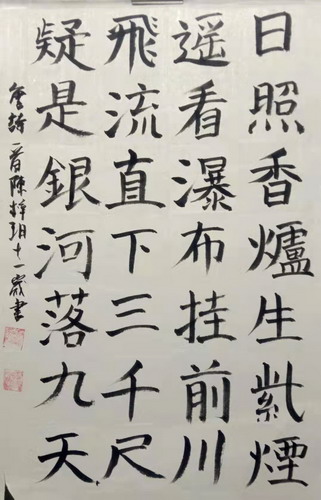 日照香爐生紫煙
遥看瀑布挂前川
飛流直下三千尺
疑是銀河落九天
唐詩一首陈梓玥十一歲書